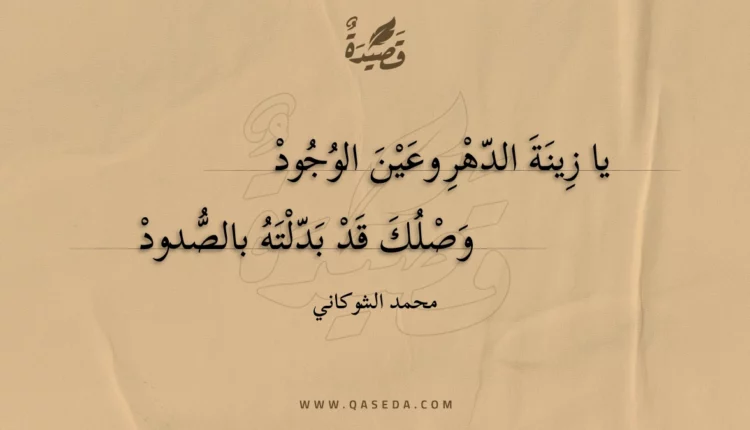 قَصِيْدَةٌ
يا زِينَةَ الدّهْرِ وعَيْنَ الوُجُودْ
وَصْلُكَ قَدْ بَدّلْتَهُ بالصُّدودْ
محمد الشوكاني
WWW.QASEDA.COM